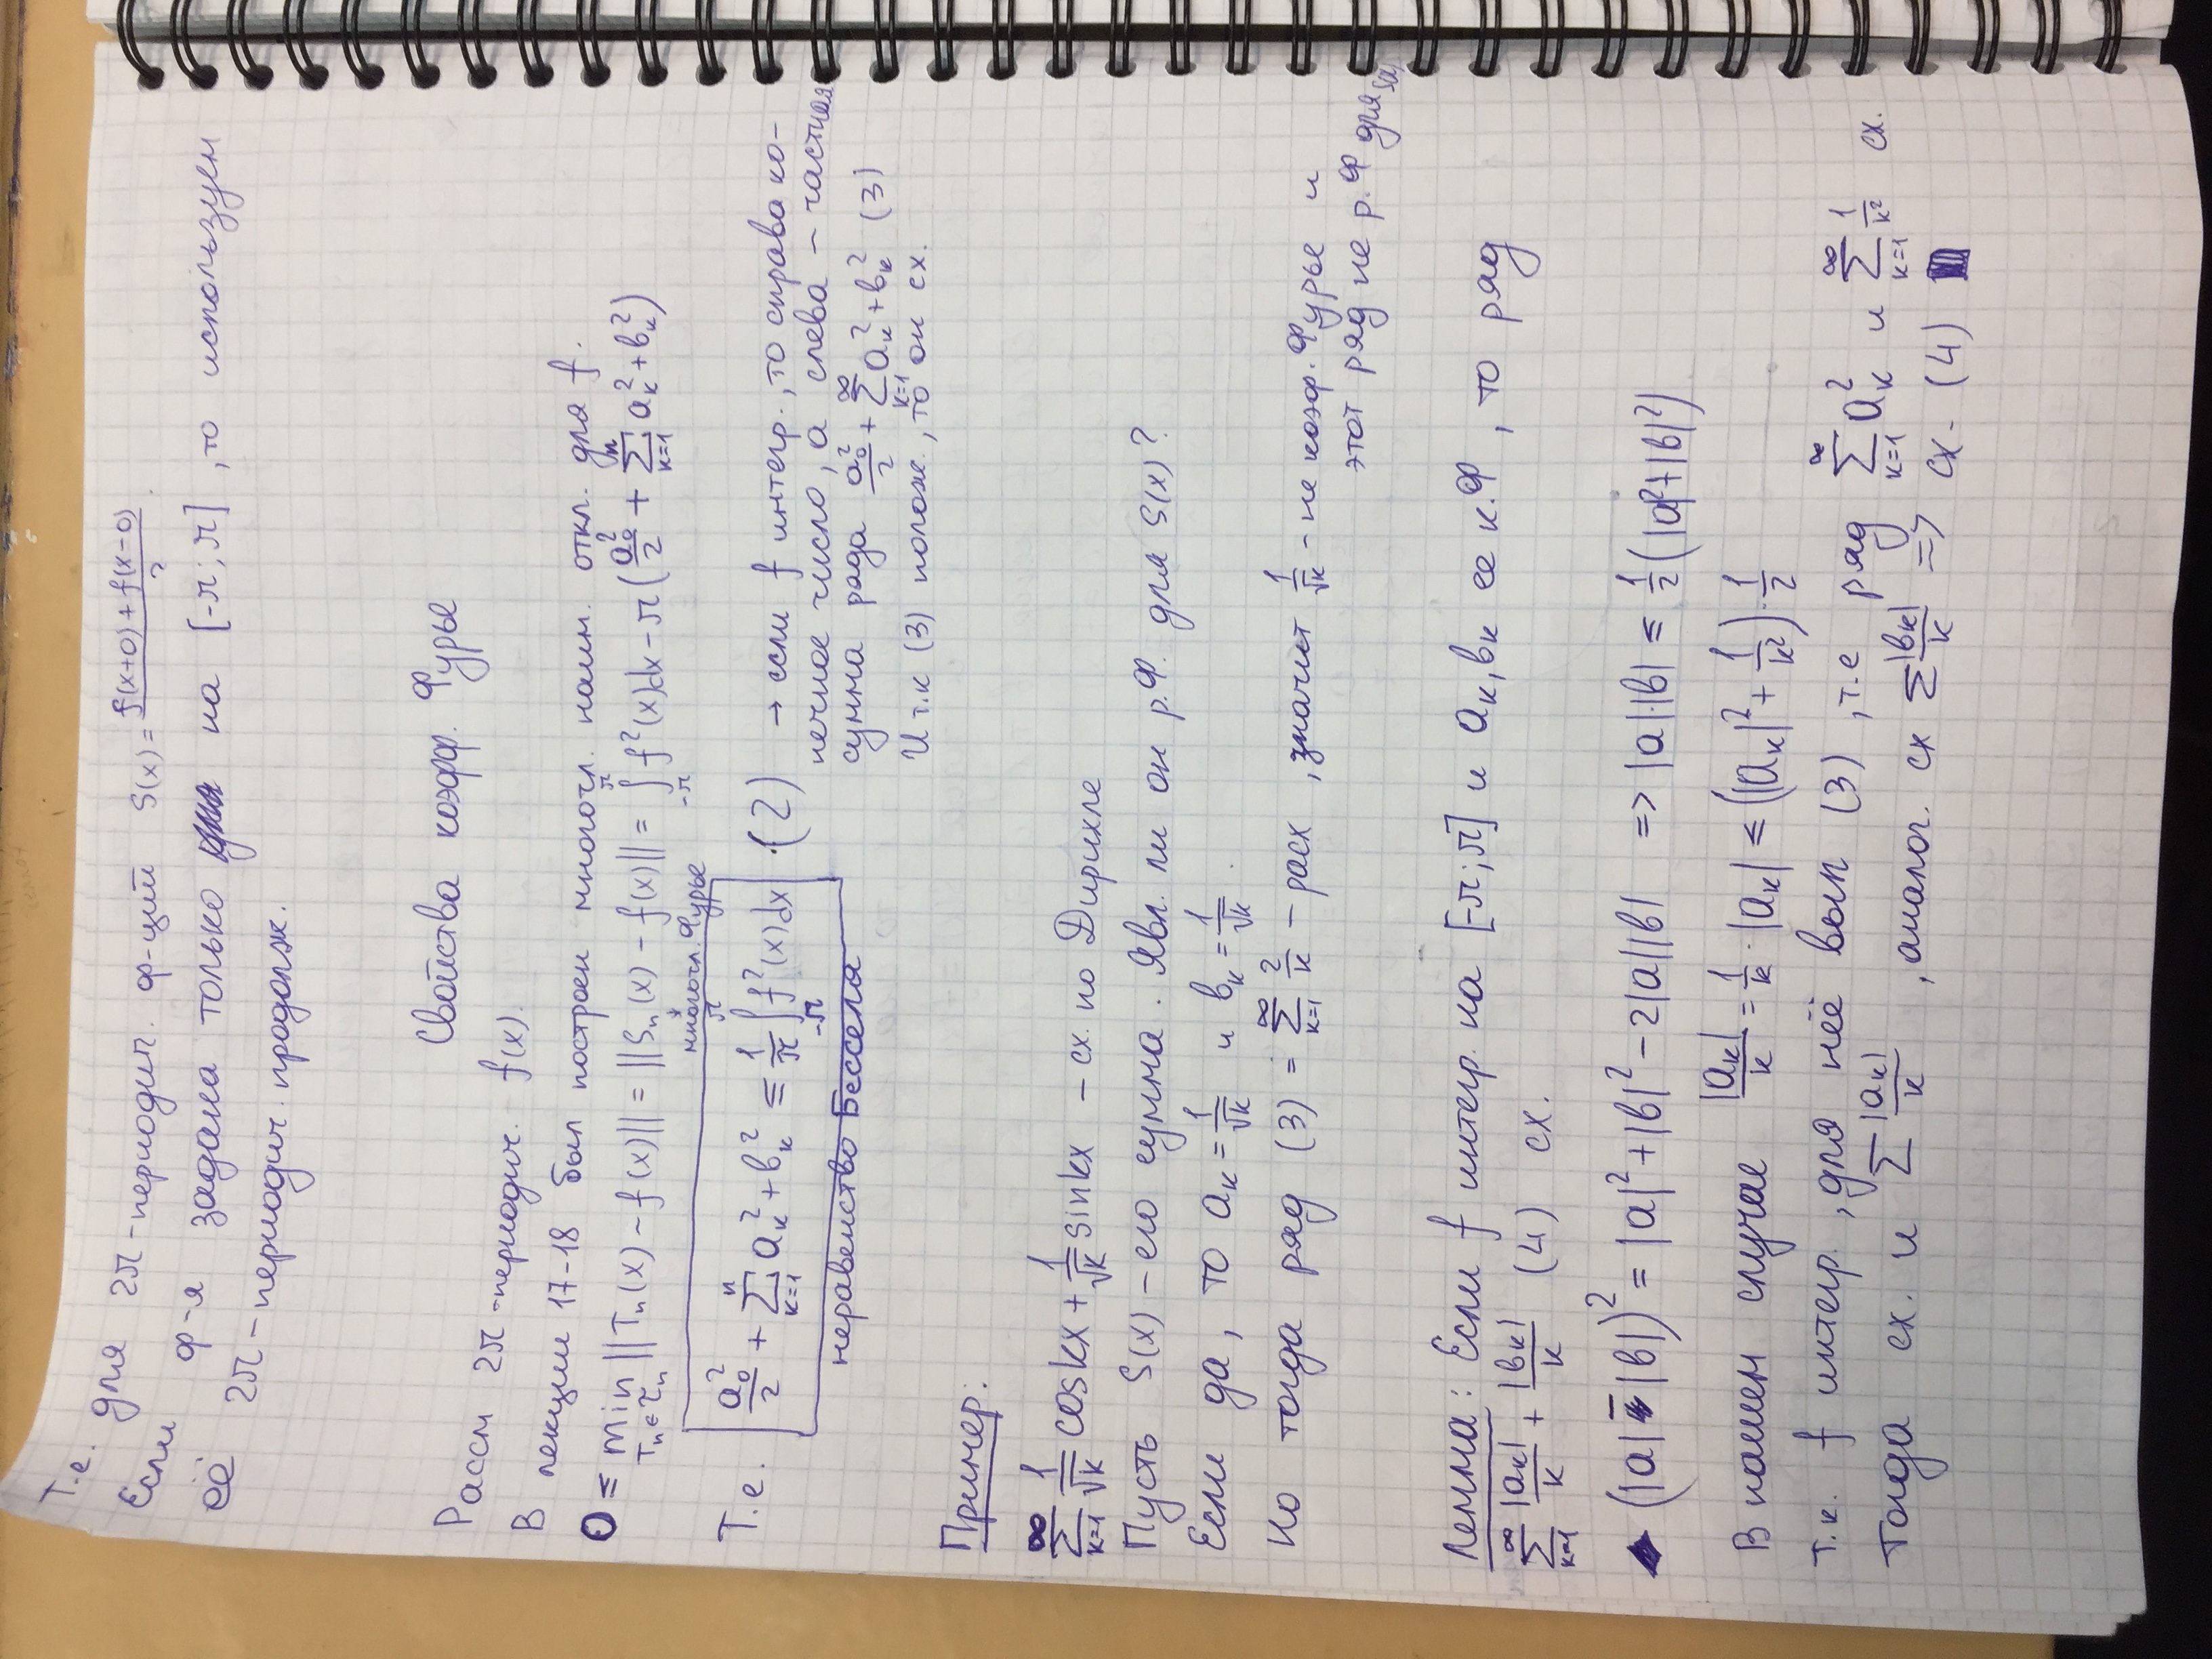 Т.е. для 2π-периодич. ф-ций S(x) = (f(x+0) + f(x-0))/2.
Если ф-я задана только на [-π; π], то используем
её 2π-периодич. продолж.
Свойства коэфф. Фурье
Рассм 2π-периодич. f(x).
В лекции 17-18 был построен многочл. наим. откл. для f.
0 ≤ min_{Tₙ∈τₙ} ||Tₙ(x) - f(x)|| = ||Sₙ(x) - f(x)|| = ∫_{-π}^{π} f²(x)dx - π(a₀²/2 + Σ_{k=1}^{n} aₖ² + bₖ²)
многочл. Фурье
Т.е. a₀²/2 + Σ_{k=1}^{n} aₖ² + bₖ² ≤ 1/π ∫_{-π}^{π} f²(x)dx (2) → если f интегр., то справа ко-
нечное число, а слева - частная
неравенство Бесселя
сумма ряда a₀²/2 + Σ_{k=1}^{∞} aₖ² + bₖ² (3)
И т.к (3) полож., то он сх.
Пример:
Σ_{k=1}^{∞} 1/√k coskx + 1/√k sinkx - сх. по Дирихле
Пусть S(x) - его сумма. Явл. ли он р.Ф. для S(x)?
Если да, то aₖ = 1/√k и bₖ = 1/√k.
Но тогда ряд (3) = Σ_{k=1}^{∞} 2/k - расх, значит 1/√k - не коэф. Фурье и
этот ряд не р.Ф для S(x)
Лемма: Если f интегр. на [-π; π] и aₖ, bₖ ее к.Ф, то ряд
Σ_{k=1}^{∞} |aₖ|/k + |bₖ|/k (4) сх.
(|a| - |b|)² = |a|² + |b|² - 2|a||b| => |a|·|b| ≤ 1/2(|a|² + |b|²)
В нашем случае |aₖ|/k = 1/k · |aₖ| ≤ (|aₖ|² + 1/k²)·1/2
т.к. f интегр., для неё вып (3), т.е ряд Σ_{k=1}^{∞} aₖ² и Σ_{k=1}^{∞} 1/k² сх.
Тогда сх. и Σ |aₖ|/k, аналог. сх Σ |bₖ|/k => сх. (4)